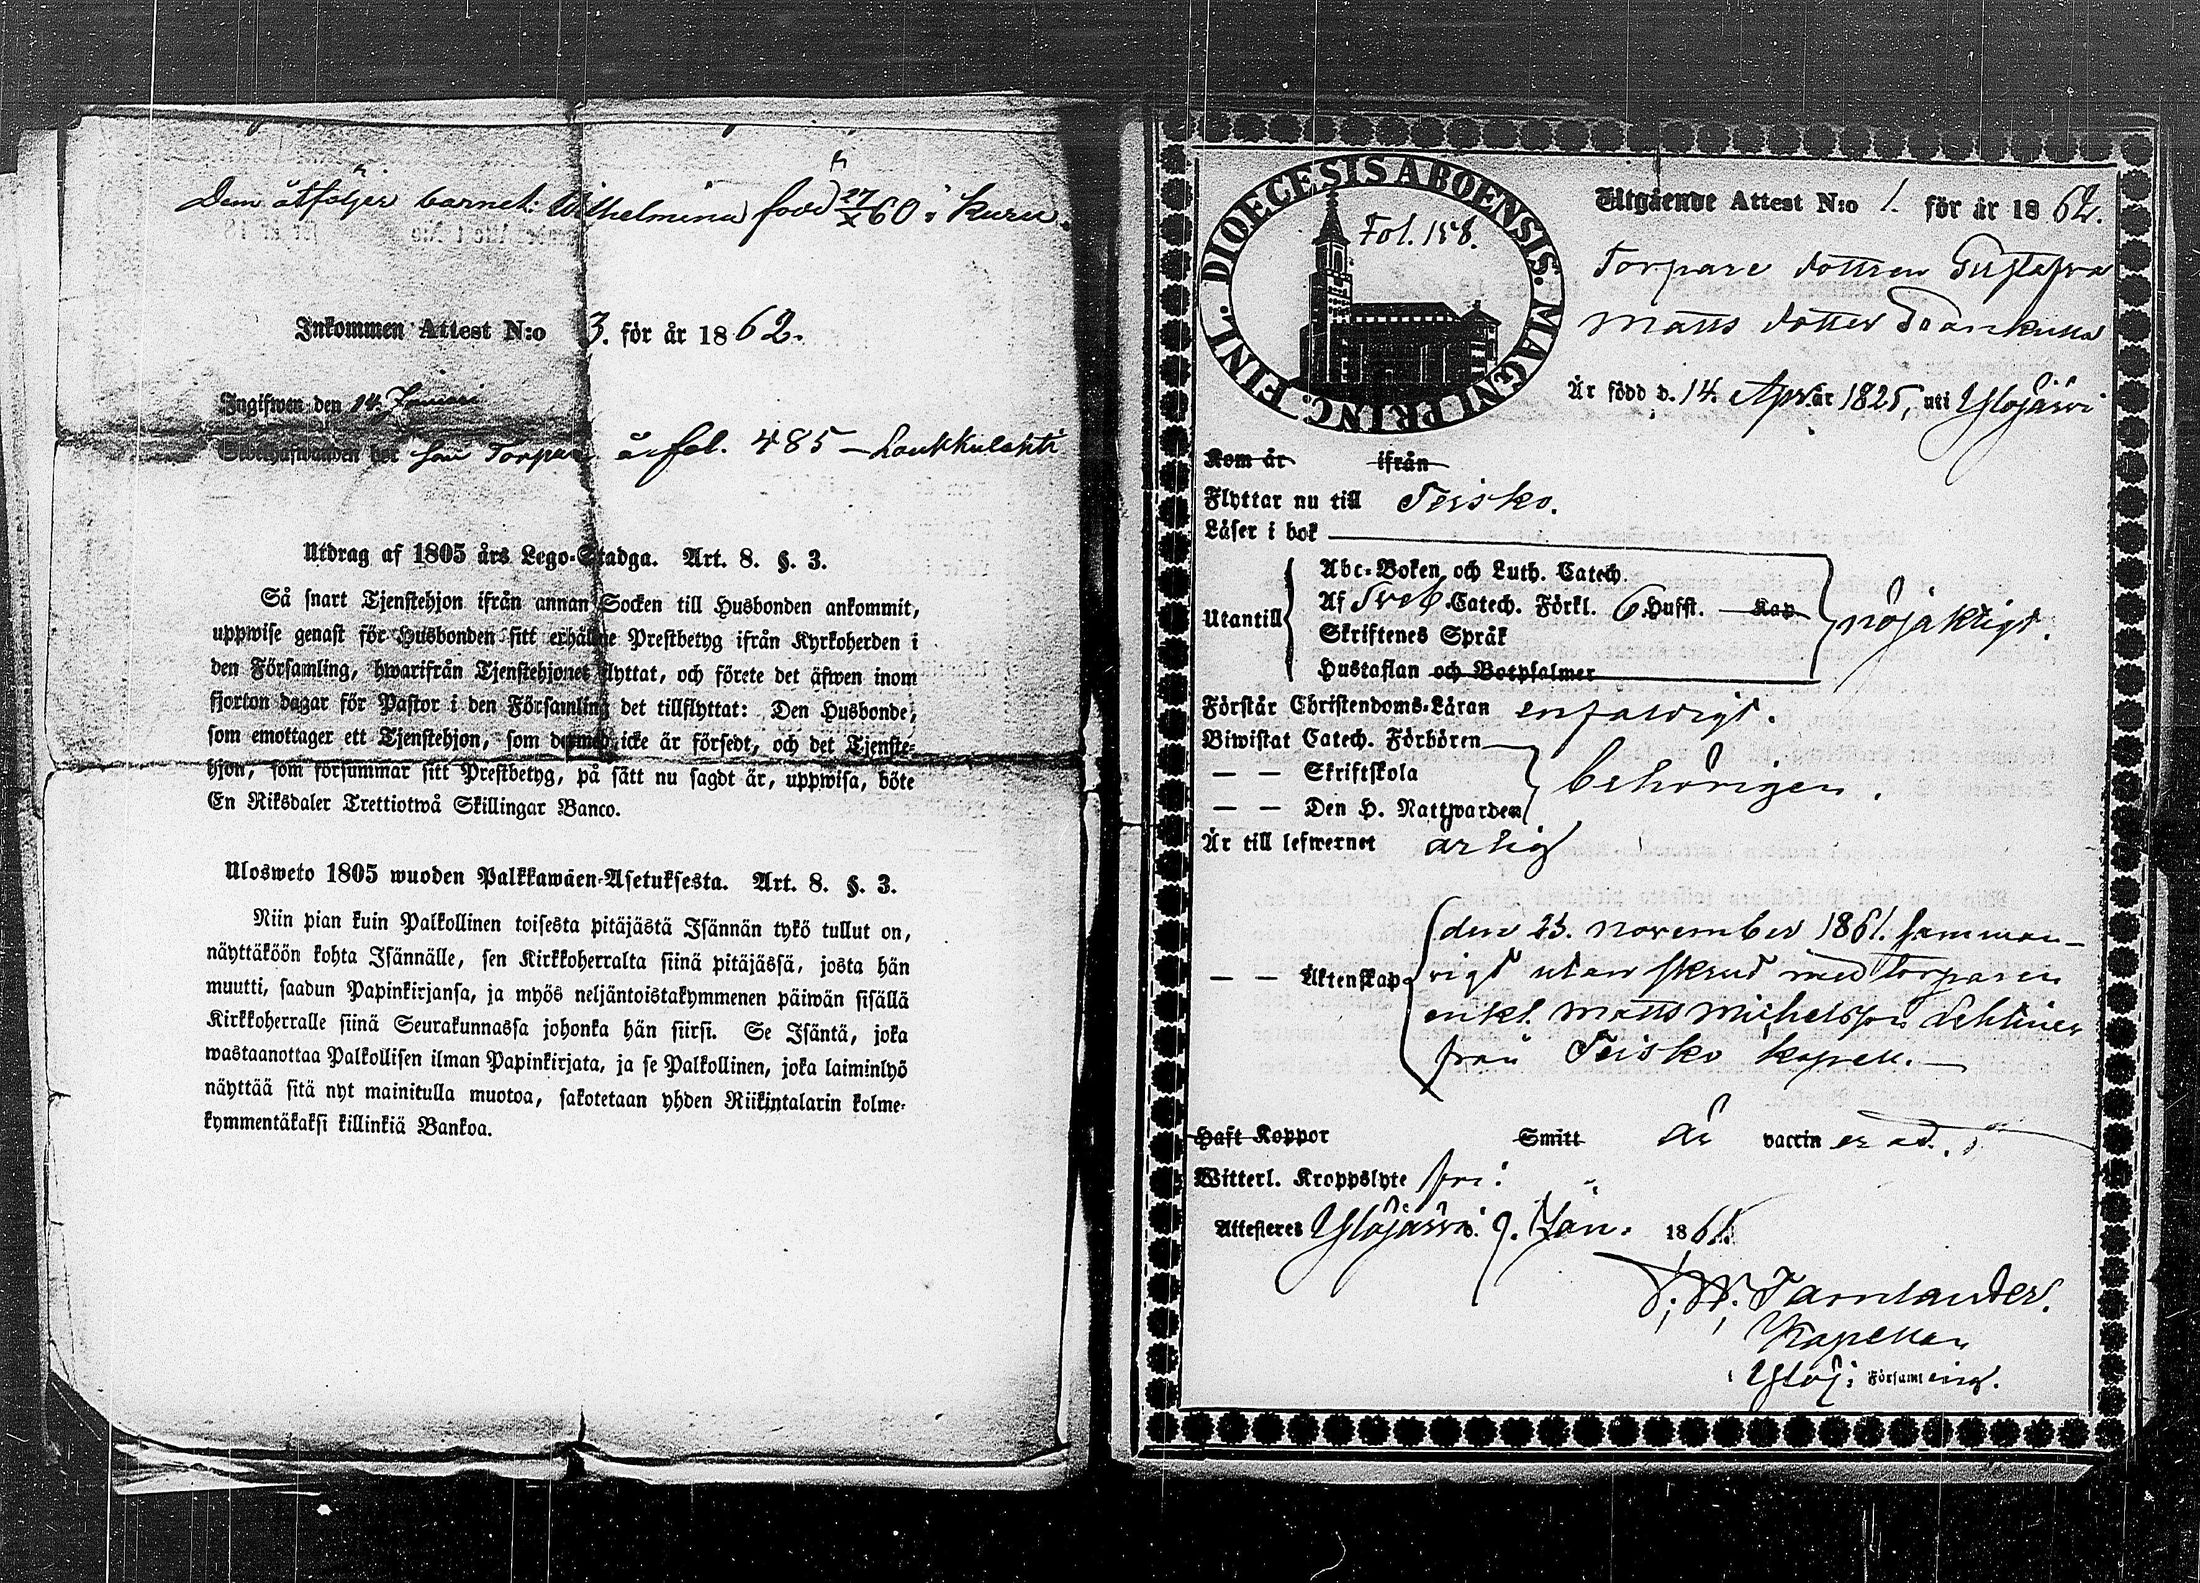 Dem åtföljer barnet: Wilhelmina född 27/X 60 i Kuru.
Inkommen Attest N:o 3. för år 1862.
Ingifwen den 14 Januari
bor som Torpar å fol. 485 – Loukkulahti
Utdrag af 1805 års Lego-Stadga. Art. 8. §. 3.
Så snart Tjenstehjon ifrån annan Socken till Husbonden ankommit,
uppwise genast för Husbonden sitt erhållne Prestbetyg ifrån Kyrkoherden i
den Församling, hwarifrån Tjenstehjonet flyttat, och förete det äfwen inom
fjorton dagar för Pastor i den Församling det tillflyttat: Den Husbonde,
som emottager ett Tjenstehjon, som dermed icke är försedt, och det Tjenste-
hjon, som försummar sitt Prestbetyg, på sätt nu sagdt är, uppwisa, böte
En Riksdaler Trettiotwå Skillingar Banco.
Ulosweto 1805 wuoden Palkkawäen-Asetuksesta. Art. 8. §. 3.
Niin pian kuin Palkollinen toisesta pitäjästä Isännän tykö tullut on,
näyttäköön kohta Isännälle, sen Kirkkoherralta siinä pitäjässä, josta hän
muutti, saadun Papinkirjansa, ja myös neljäntoistakymmenen päiwän sisällä
Kirkkoherralle siinä Seurakunnassa johonka hän siirsi. Se Isäntä, joka
wastaanottaa Palkollisen ilman Papinkirjata, ja se Palkollinen, joka laiminlyö
näyttää sitä nyt mainitulla muotoa, sakotetaan yhden Riikintalarin kolme-
kymmentäkaksi killinkiä Bankoa.
DIOECESIS ABOENSIS. MAGNI PRINC. FINL.
Fol. 158.
Utgående Attest N:o 1. för år 1862.
Torpare dottren Gustafva
Matts dotter
Är född d. 14. Apr. år 1825, uti Ylöjärvi
Kom år ifrån
Flyttar nu till Teisko.
Läser i bok
Utantill
Abc-Boken och Luth. Catech.
Af Sveb. Catech. Förkl. 6 Hufst. Kap
Skriftenes Språk
Hustaflan och Botpsalmer
nöjaktigt.
Förstår Christendoms-Läran enfaldigt.
Biwistat Catech. Förhören
— — Skriftskola
— — Den H. Nattwarden
behörigen.
Är till lefwernet ärlig
— — Äktenskap
den 23. november 1861. samman-
vigd utan skrud med Torparen
enkl. Matts Michelsson Lehtinen
från Teisko kapell.
Haft Koppor Smitt är vaccinerad.
Witterl. Kroppslyte fri.
Attesteres Ylöjärvi. 9. Jan. 186
Kapellan
Ylöj: Församling.